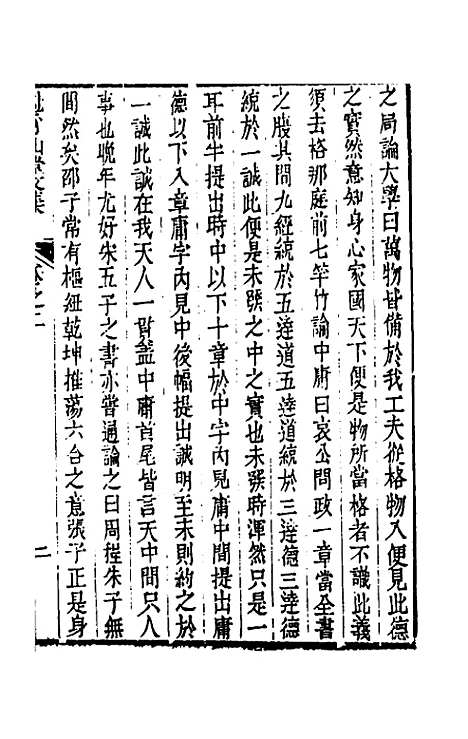 之局論大學曰萬物皆備於我工夫從格物入便見此德
之實然意知身心家國天下便是物所當格者不識此義
須去格那庭前七竿竹論中庸曰哀公問政一章當全書
之腹其問九經統於五達道五達道統於三達德三達德
統於一誠此便是未發之中之實也未發時渾然只是一
耳前半提出時中以下十章於中字內見庸中間提出庸
德以下入章庸字內見中後幅提出誠明至末則約之於
一誠此誠在我天人一貫蓋中庸首尾皆言天中間只人
事也晚年尤好朱五子之書亦嘗通論之曰周程朱子無
間然矣邵子常有樞紐乾坤推蕩六合之意張子正是身
山堂文集
二